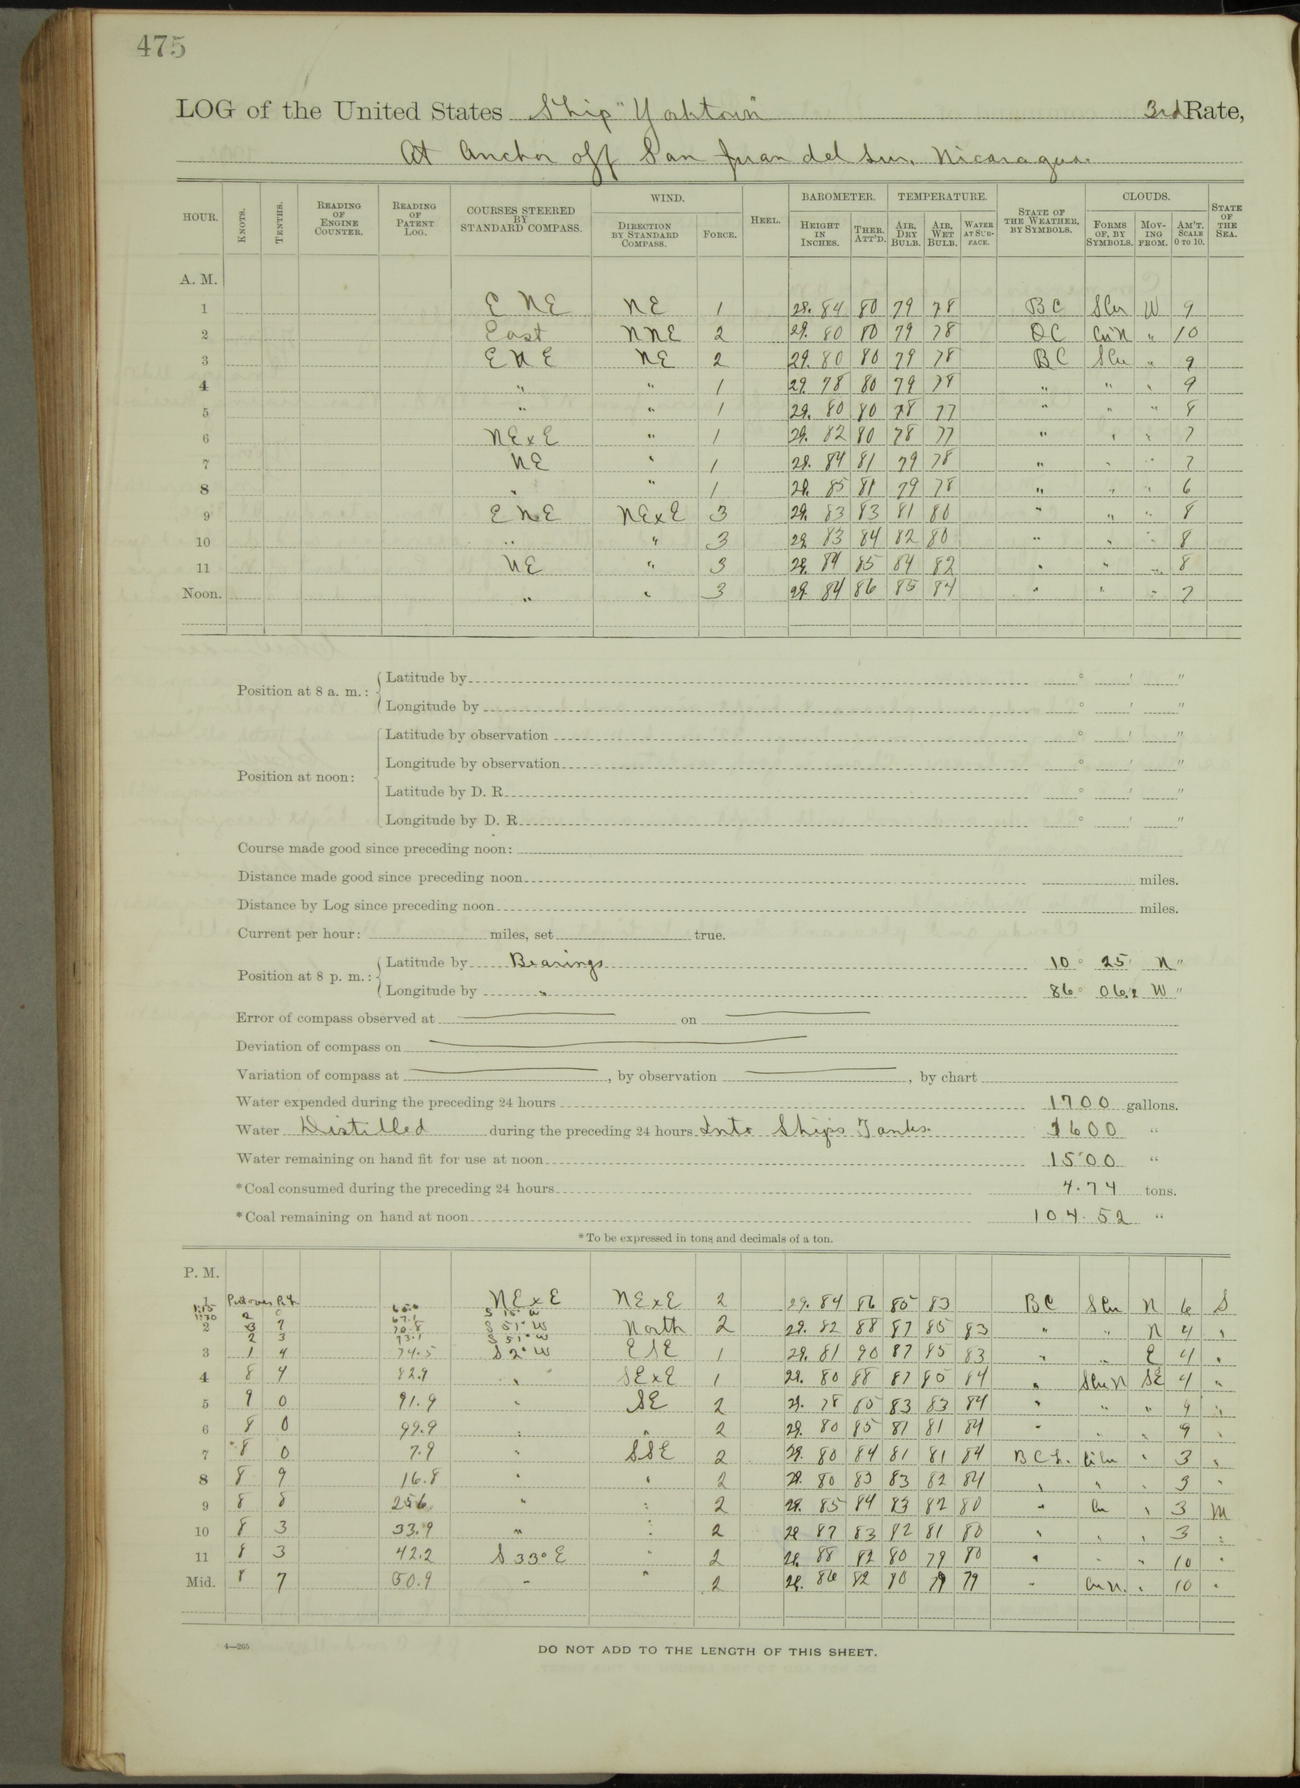 475
LOG of the United States Ship "Yorktown" 3rd Rate,
At anchor off San Juan del Sur, Nicaragua.
HOUR. KNOTS. TENTHS. READING OF ENGINE COUNTER. READING OF PATENT LOG. COURSES STEERED BY STANDARD COMPASS. WIND. DIRECTION BY STANDARD COMPASS. FORCE. HEEL. BAROMETER. HEIGHT IN INCHES. THER. ATT'D. TEMPERATURE. AIR, DRY BULB. AIR, WET BULB. WATER AT SURFACE. STATE OF THE WEATHER, BY SYMBOLS. CLOUDS. FORMS OF, BY SYMBOLS. MOVING FROM. AM'T, SCALE 0 TO 10. STATE OF THE SEA.
A. M.
1 ENE NE 1 29. 84 80 79 78 BC SCu W 9
2 East NNE 2 29. 80 80 79 78 OC CuN " 10
3 ENE NE 2 29. 80 80 79 78 BC SCu " 9
4 " " 1 29. 78 80 79 78 " " " 9
5 " " 1 29. 80 80 78 77 " " " 8
6 NExE " 1 29. 82 80 78 77 " " " 7
7 NE " 1 29. 84 81 79 78 " " " 7
8 " " 1 29. 85 81 79 78 " " " 6
9 ENE NExE 3 29. 83 83 81 80 " " " 8
10 " " 3 29. 83 84 82 80 " " " 8
11 NE " 3 29. 84 85 84 82 " " " 8
Noon. " " 3 29. 84 86 85 84 " " " 7
Position at 8 a. m.: Latitude by ° ' "
Longitude by ° ' "
Position at noon: Latitude by observation ° ' "
Longitude by observation ° ' "
Latitude by D. R. ° ' "
Longitude by D. R. ° ' "
Course made good since preceding noon:
Distance made good since preceding noon miles.
Distance by Log since preceding noon miles.
Current per hour: miles, set true.
Position at 8 p. m.: Latitude by Bearings 10° 25' N"
Longitude by " 86° 06.2 W"
Error of compass observed at on
Deviation of compass on
Variation of compass at , by observation , by chart
Water expended during the preceding 24 hours 1700 gallons.
Water Distilled during the preceding 24 hours Into Ship's Tanks. 1600 "
Water remaining on hand fit for use at noon 1500 "
*Coal consumed during the preceding 24 hours 4.74 tons.
*Coal remaining on hand at noon 104.52 "
*To be expressed in tons and decimals of a ton.
P. M.
1 NExE NExE 2 29. 84 86 85 83 BC SCu N 6 S
1:15 Put over P.L. 65.0 S 15° W
1:30 2 0 67.1 S 51° W
2 3 7 70.8 S 51° W North 2 29. 82 88 87 85 83 " " N 4 "
2 3 73.1
3 1 4 74.5 S 2° W ESE 1 29. 81 90 87 85 83 " " E 4 "
4 8 4 82.9 " SExE 1 29. 80 88 87 85 84 " SCuN SE 4 "
5 9 0 91.9 " SE 2 29. 78 85 83 83 84 " " " 4 "
6 8 0 99.9 " " 2 29. 80 85 81 81 84 " " " 9 "
7 8 0 7.9 " SSE 2 29. 80 84 81 81 84 BCL. CiCu " 3 "
8 8 9 16.8 " " 2 29. 80 83 83 82 84 " " " 3 "
9 8 8 25.6 " " 2 29. 85 84 83 82 80 " Cu " 3 M
10 8 3 33.9 " " 2 29 87 83 82 81 80 " " " 3 "
11 8 3 42.2 S 33° E " 2 29. 88 82 80 79 80 " " " 10 "
Mid. 8 7 50.9 " " 2 29. 86 82 80 79 79 " CuN. " 10 "
4—265
DO NOT ADD TO THE LENGTH OF THIS SHEET.